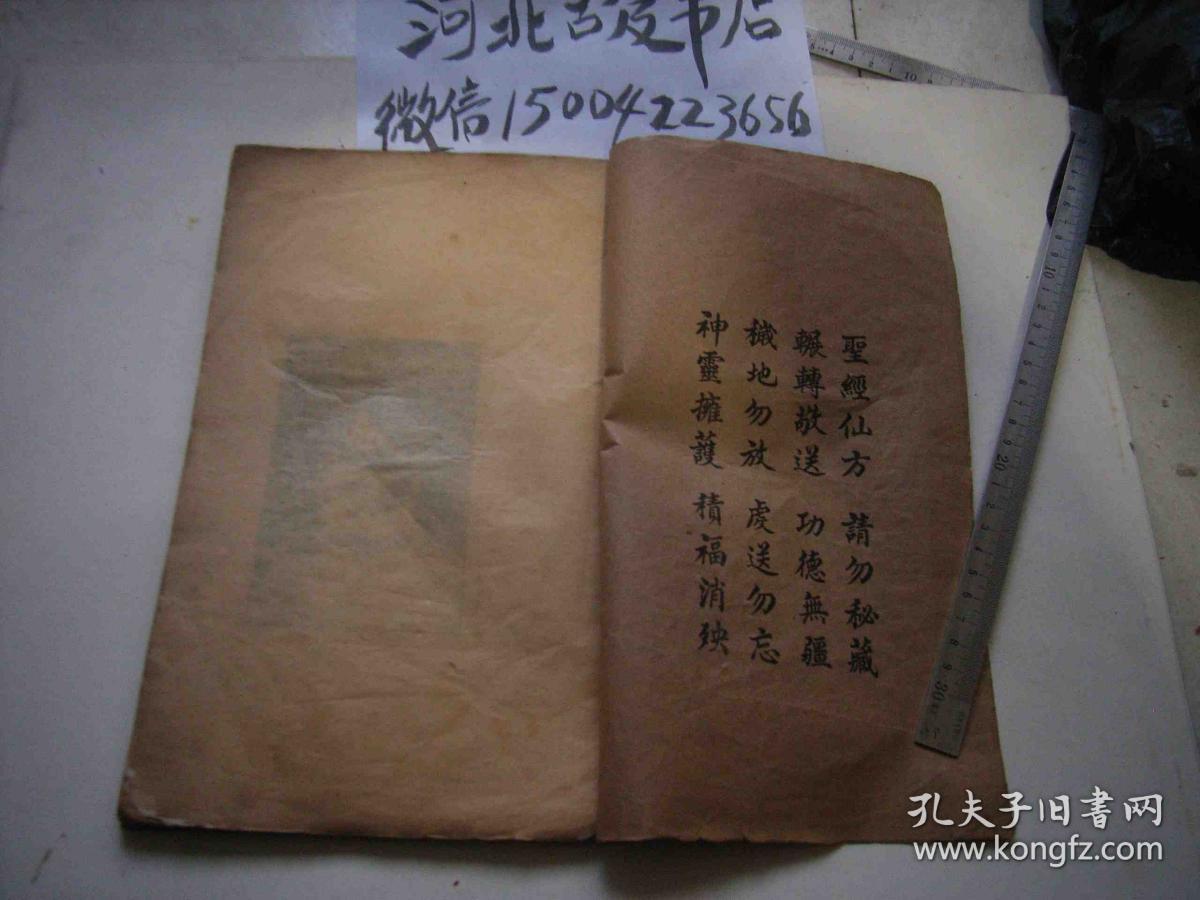 河北古旧书店
微信15004223656
聖經仙方 請勿秘藏
輾轉敬送 功德無疆
穢地勿放 虔送勿忘
神靈擁護 積福消殃
孔夫子旧書网
www.kongfz.com